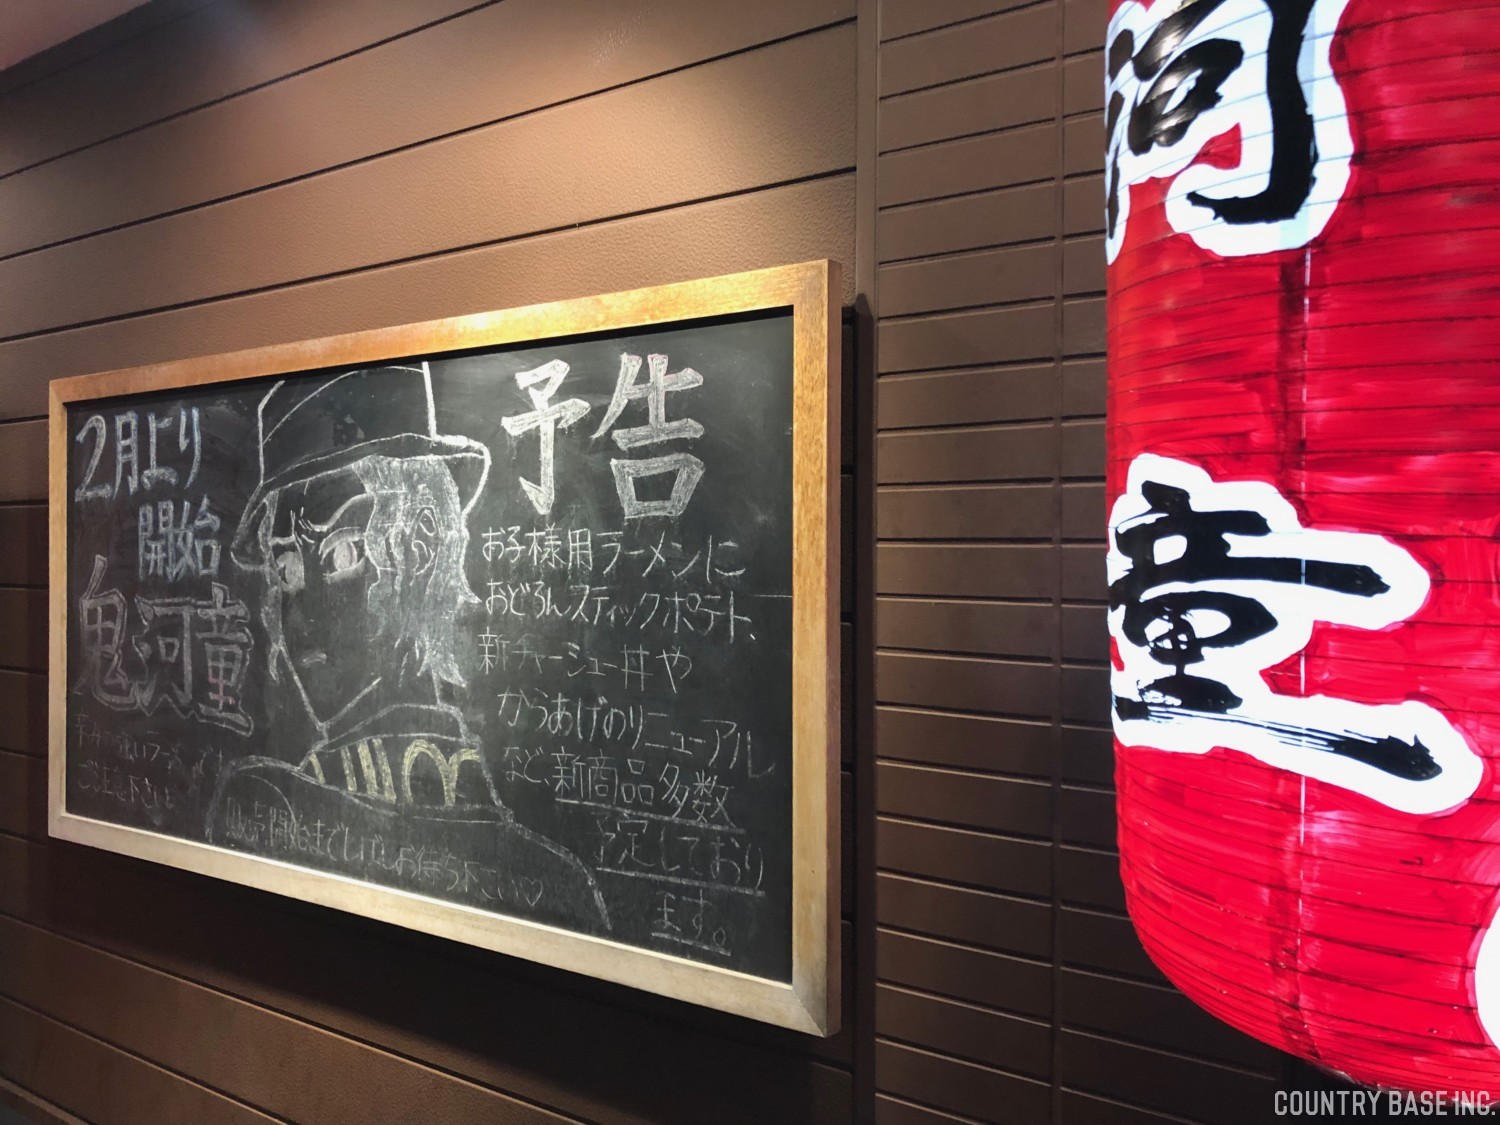 予告
お子様用ラーメンに
おどろんスティックポテト、
新チャーシュー丼や
からあげのリニューアル
など、新商品多数
予定しており
ます。
2月より
開始
鬼河童
ご注意下さい
開始までしばしお待ち下さい♡
河童
COUNTRY BASE INC.